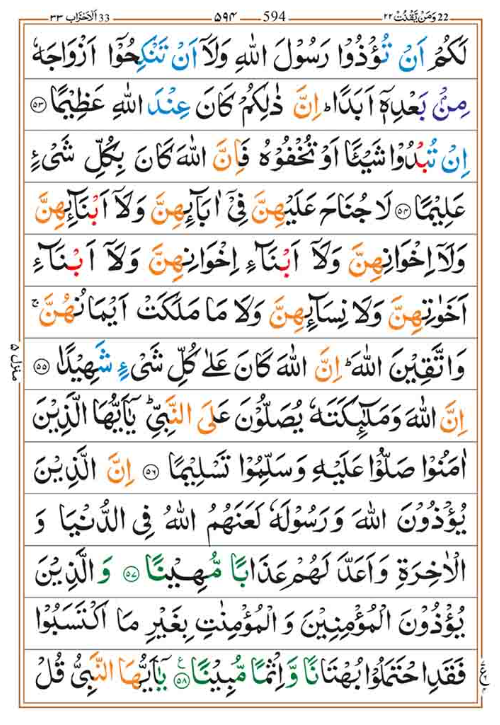 ٢٢ وَمَنْ يَّقْنُتْ 22 594 ٥٩٤ 33 اَلْاَحْزَاب ٣٣
لَكُمْ اَنْ تُؤْذُوْا رَسُوْلَ اللّٰهِ وَلَاۤ اَنْ تَنْكِحُوْۤا اَزْوَاجَهٗ
مِنْۢ بَعْدِهٖۤ اَبَدًا ؕ اِنَّ ذٰلِكُمْ كَانَ عِنْدَ اللّٰهِ عَظِيْمًا ٥٣
اِنْ تُبْدُوْا شَيْـًٔا اَوْ تُخْفُوْهُ فَاِنَّ اللّٰهَ كَانَ بِكُلِّ شَیْءٍ
عَلِيْمًا ٥٤ لَا جُنَاحَ عَلَيْهِنَّ فِیْۤ اٰبَآىِٕهِنَّ وَلَاۤ اَبْنَآىِٕهِنَّ
وَلَاۤ اِخْوَانِهِنَّ وَلَاۤ اَبْنَآءِ اِخْوَانِهِنَّ وَلَاۤ اَبْنَآءِ
اَخَوٰتِهِنَّ وَلَا نِسَآىِٕهِنَّ وَلَا مَا مَلَكَتْ اَيْمَانُهُنَّ ۚ
وَاتَّقِيْنَ اللّٰهَ ؕ اِنَّ اللّٰهَ كَانَ عَلٰی كُلِّ شَیْءٍ شَهِيْدًا ٥٥
منزل ٥
اِنَّ اللّٰهَ وَمَلٰٓىِٕكَتَهٗ يُصَلُّوْنَ عَلَی النَّبِیِّ ؕ يٰۤاَيُّهَا الَّذِيْنَ
اٰمَنُوْا صَلُّوْا عَلَيْهِ وَسَلِّمُوْا تَسْلِيْمًا ٥٦ اِنَّ الَّذِيْنَ
يُؤْذُوْنَ اللّٰهَ وَرَسُوْلَهٗ لَعَنَهُمُ اللّٰهُ فِی الدُّنْيَا وَ
الْاٰخِرَةِ وَاَعَدَّ لَهُمْ عَذَابًا مُّهِيْنًا ٥٧ وَالَّذِيْنَ
يُؤْذُوْنَ الْمُؤْمِنِيْنَ وَالْمُؤْمِنٰتِ بِغَيْرِ مَا اكْتَسَبُوْا
فَقَدِ احْتَمَلُوْا بُهْتَانًا وَّاِثْمًا مُّبِيْنًا ٥٨ يٰۤاَيُّهَا النَّبِیُّ قُلْ